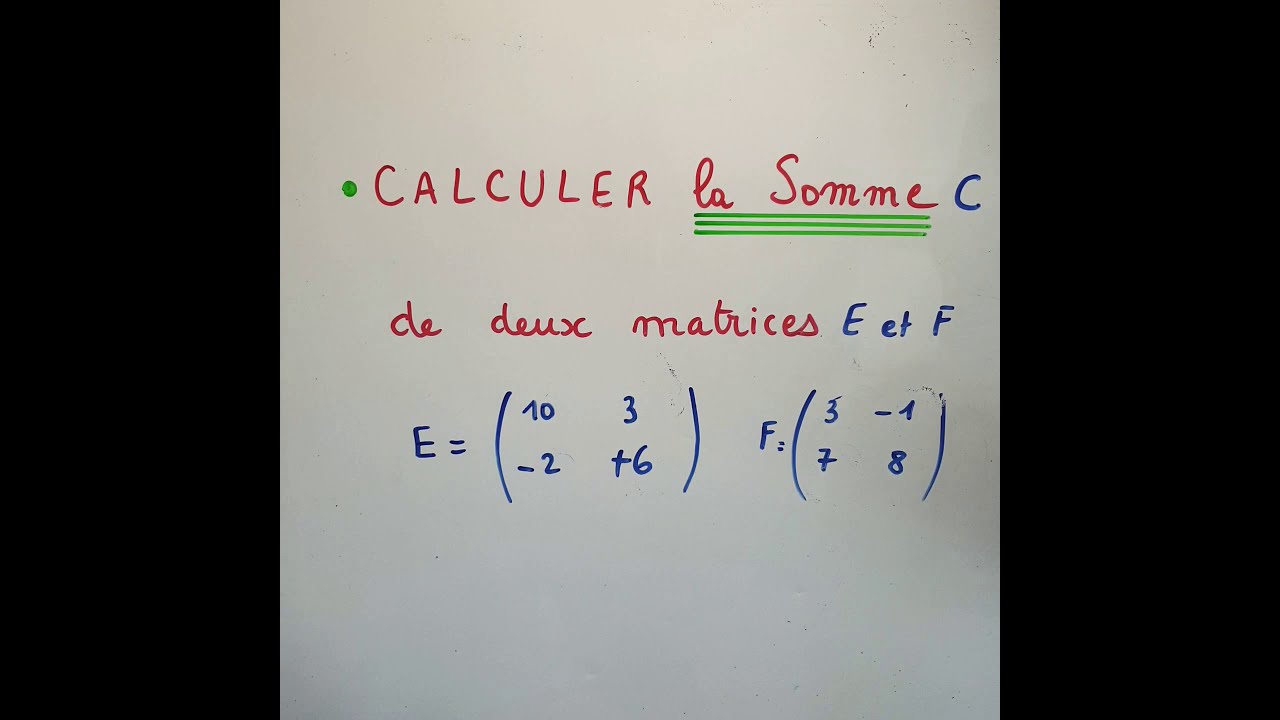 • CALCULER la Somme C
de deux matrices E et F
E = ( 10 3 F = ( 3 -1
-2 +6 ) 7 8 )